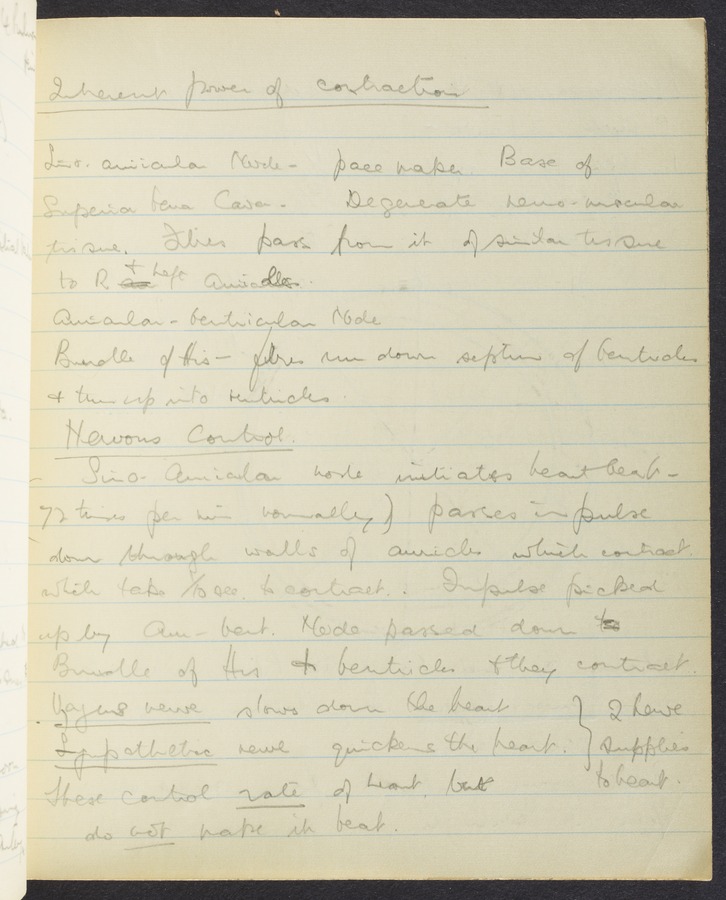 Inherent power of contraction
Sino. auricular Node - pace maker Base of
Superior Vena Cava - Degenerate neuro-muscular
tissue. Fibres pass from it of similar tissue
to R + Left Auricles.
Auricular - Ventricular Node
Bundle of His - fibres run down septum of Ventricles
+ turn up into ventricles.
Nervous Control.
Sino-Auricular node initiates heart beat -
72 times per min normally) passes impulse
down through walls of auricles which contract.
which take 1/10 sec. to contract. Impulse picked
up by Aur - Vent. Node passed down to
Bundle of His + Ventricles + they contract.
Vagus nerve slows down the heart } 2 nerve
Sympathetic nerve quickens the heart. } supplies
These control rate of heart but to heart.
do not make it beat.